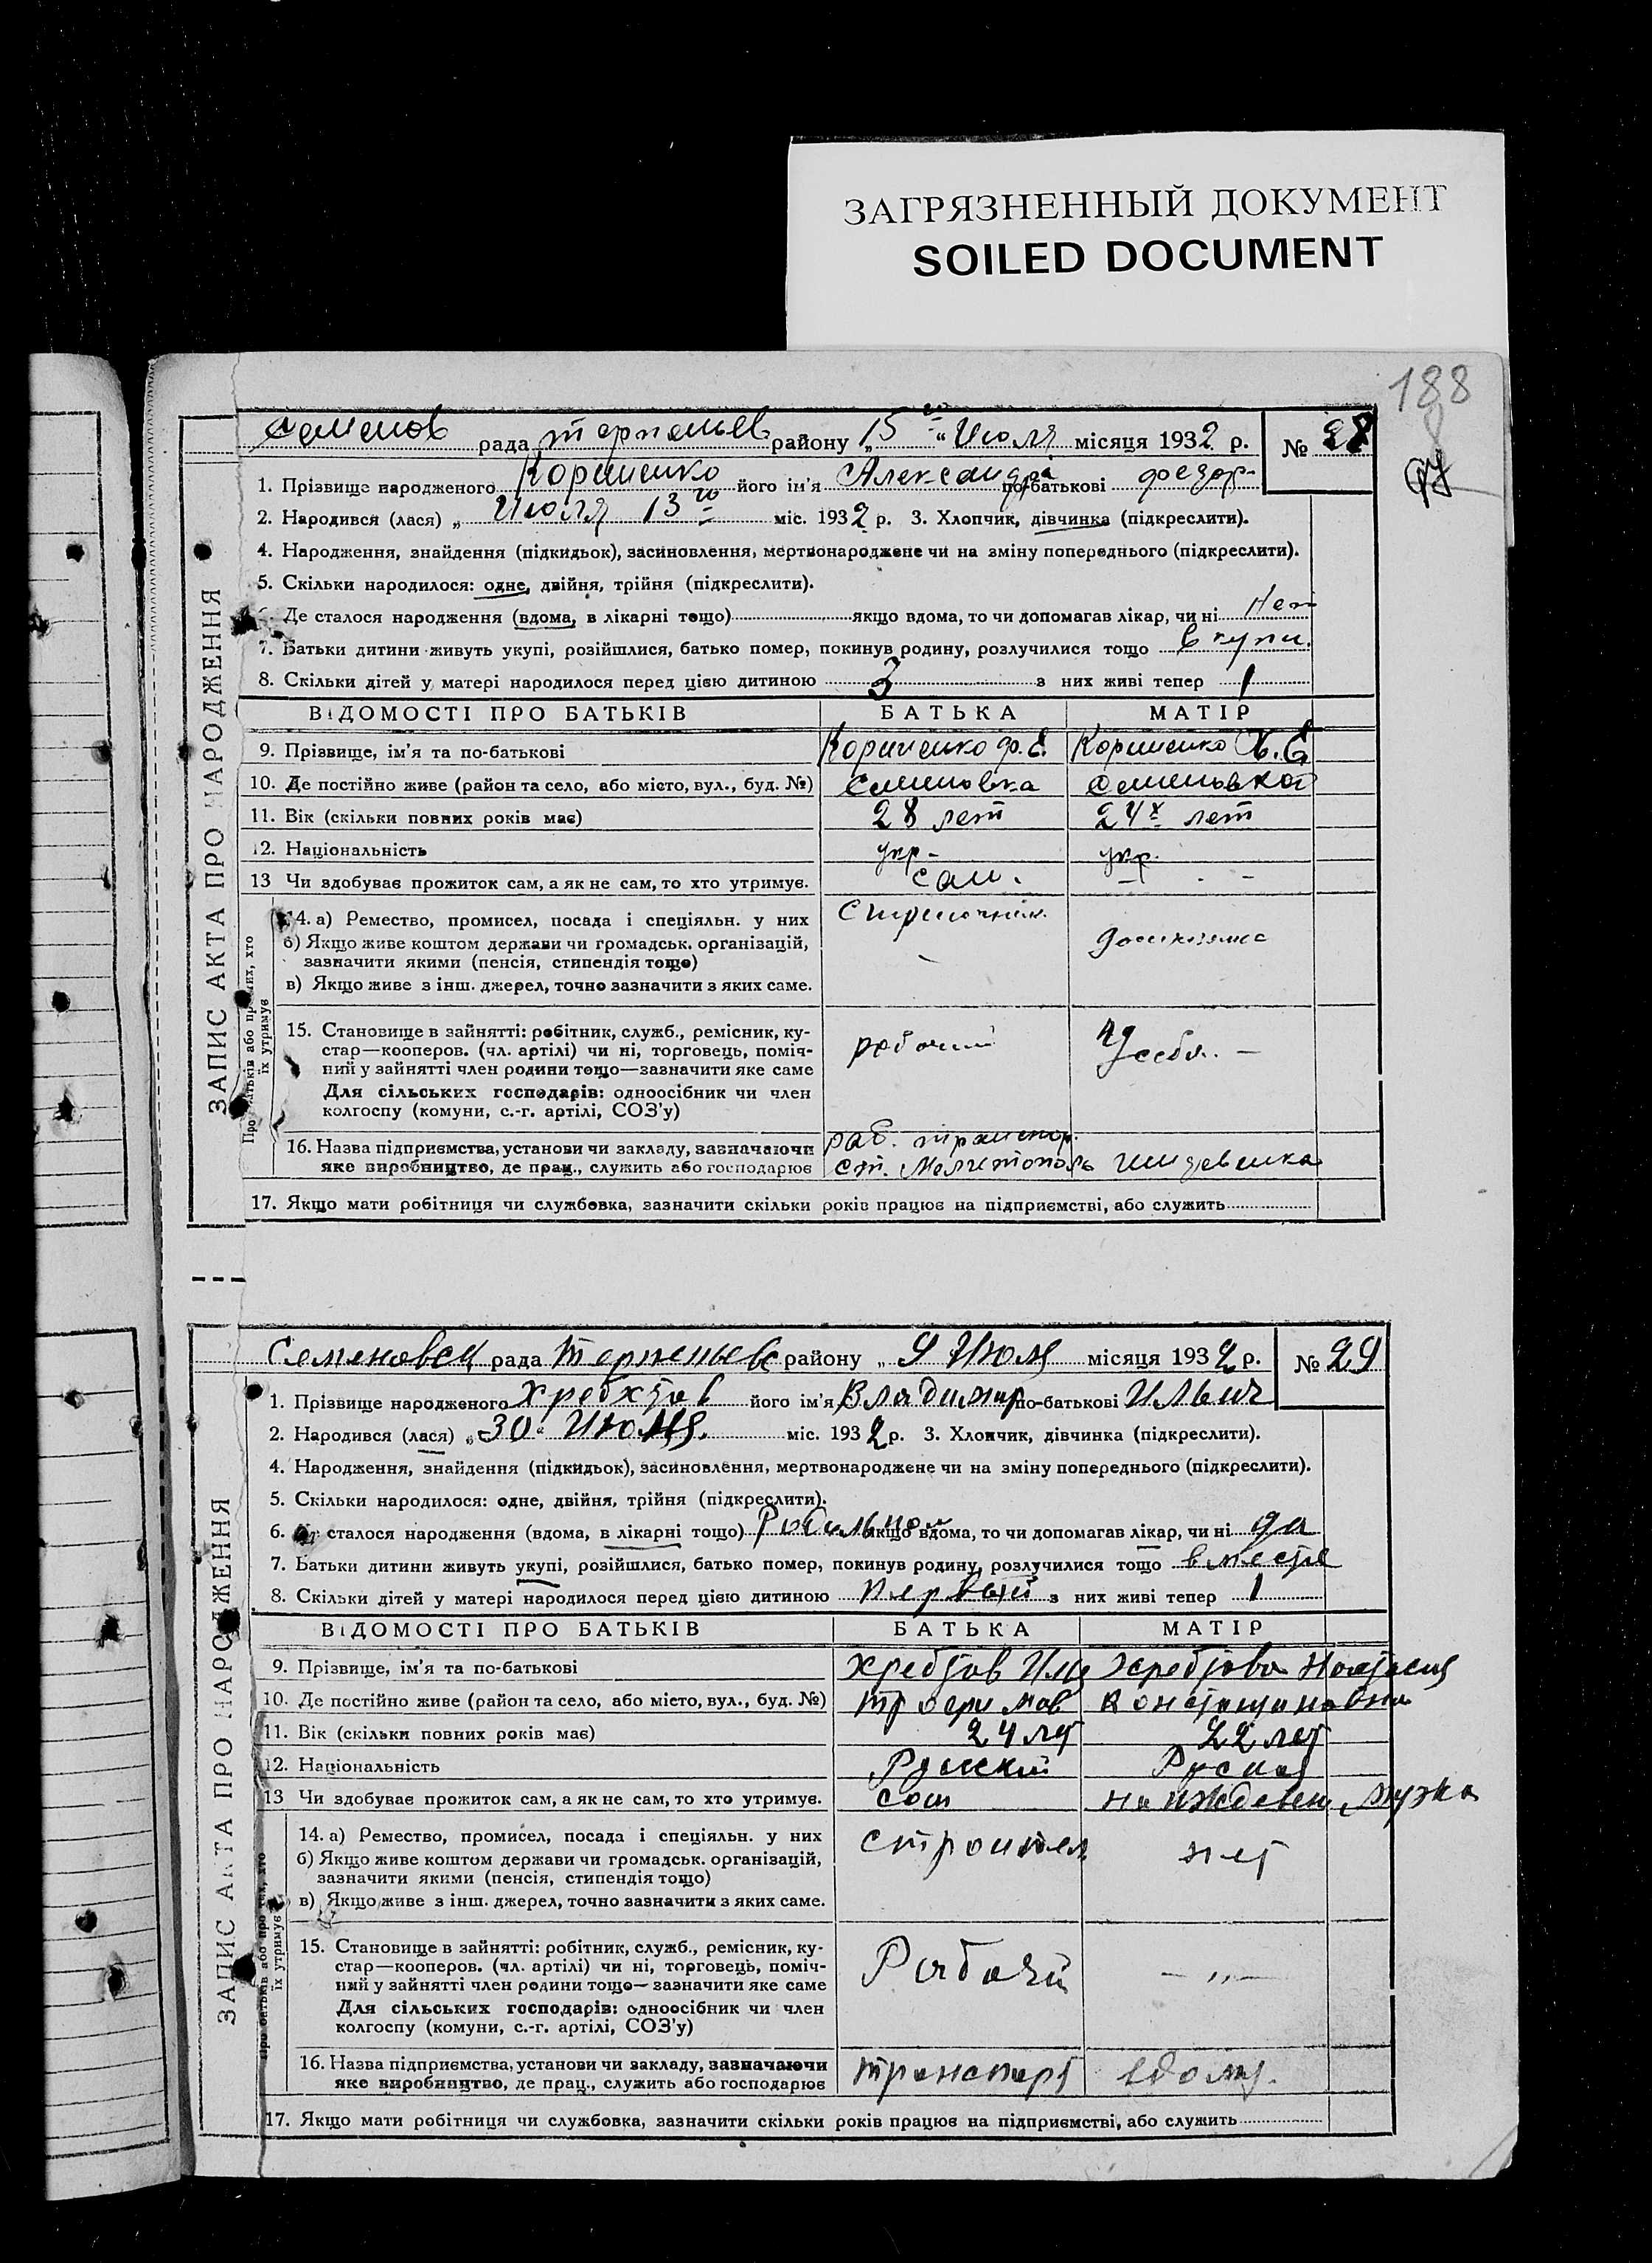 ЗАГРЯЗНЕННЫЙ ДОКУМЕНТ
SOILED DOCUMENT
188
ЗАПИС АКТА ПРО НАРОДЖЕННЯ
Семенов рада терпеньев району „15го“ Июля місяця 1932 р. № 28
1. Прізвище народженого Коришенко його ім'я Александра по-батькові федор-
2. Народився (лася) „ Июля 13го міс. 1932 р. 3. Хлопчик, дівчинка (підкреслити).
4. Народження, знайдення (підкидьок), засиновлення, мертвонароджене чи на зміну попереднього (підкреслити).
5. Скільки народилося: одне, двійня, трійня (підкреслити).
Де сталося народження (вдома, в лікарні тощо) якщо вдома, то чи допомагав лікар, чи ні Нет
7. Батьки дитини живуть укупі, розійшлися, батько помер, покинув родину, розлучилися тощо в купи.
8. Скільки дітей у матері народилося перед цією дитиною 3 з них живі тепер 1
ВІДОМОСТІ ПРО БАТЬКІВ БАТЬКА МАТІР
9. Прізвище, ім'я та по-батькові Коришенко ф. Е. Коришенко Х. Е
10. Де постійно живе (район та село, або місто, вул., буд. №) Семеновка Семеновкой
11. Вік (скільки повних років має) 28 лет 24х лет
12. Національність укр- укр.
13 Чи здобуває прожиток сам, а як не сам, то хто утримує. сам. — . —
Про батьків або про тих, хто їх утримує
14. а) Ремество, промисел, посада і спеціяльн. у них стрелочник. домхозяйка
б) Якщо живе коштом держави чи громадськ. організацій,
зазначити якими (пенсія, стипендія тощо)
в) Якщо живе з інш. джерел, точно зазначити з яких саме.
15. Становище в зайнятті: робітник, служб., ремісник, ку-
стар—кооперов. (чл. артілі) чи ні, торговець, поміч- рабочий у себя. —
ний у зайнятті член родини тощо—зазначити яке саме
Для сільських господарів: одноосібник чи член
колгоспу (комуни, с.-г. артілі, СОЗ'у)
16. Назва підприємства, установи чи закладу, зазначаючи раб. транспор.
яке виробництво, де прац., служить або господарює ст. Мелитополь
17. Якщо мати робітниця чи службовка, зазначити скільки років працює на підприємстві, або служить
ЗАПИС АКТА ПРО НАРОДЖЕННЯ
Семеновск рада Терпеньевс району „ 9 Июля місяця 1932 р. № 29
1. Прізвище народженого Хребтов його ім'я Владимир по-батькові Ильич
2. Народився (лася) „30“ Июня. міс. 1932 р. 3. Хлопчик, дівчинка (підкреслити).
4. Народження, знайдення (підкидьок), засиновлення, мертвонароджене чи на зміну попереднього (підкреслити).
5. Скільки народилося: одне, двійня, трійня (підкреслити).
6. Де сталося народження (вдома, в лікарні тощо) Родильном якщо вдома, то чи допомагав лікар, чи ні да
7. Батьки дитини живуть укупі, розійшлися, батько помер, покинув родину, розлучилися тощо вместе
8. Скільки дітей у матері народилося перед цією дитиною первый з них живі тепер 1
ВІДОМОСТІ ПРО БАТЬКІВ БАТЬКА МАТІР
9. Прізвище, ім'я та по-батькові Хребтов Иля Хребтова Настасия
10. Де постійно живе (район та село, або місто, вул., буд. №) Трофимов Константиновна
11. Вік (скільки повних років має) 24 лет 22 лет
12. Національність Русский Руская
13 Чи здобуває прожиток сам, а як не сам, то хто утримує. сам на иждевен мужа
Про батьків або про тих, хто їх утримує
14. а) Ремество, промисел, посада і спеціяльн. у них строител нет
б) Якщо живе коштом держави чи громадськ. організацій,
зазначити якими (пенсія, стипендія тощо)
в) Якщо живе з інш. джерел, точно зазначити з яких саме.
15. Становище в зайнятті: робітник, служб., ремісник, ку-
стар—кооперов. (чл. артілі) чи ні, торговець, поміч- Рабочй — „ —
ний у зайнятті член родини тощо—зазначити яке саме
Для сільських господарів: одноосібник чи член
колгоспу (комуни, с.-г. артілі, СОЗ'у)
16. Назва підприємства, установи чи закладу, зазначаючи транспорт вдому.
яке виробництво, де прац., служить або господарює
17. Якщо мати робітниця чи службовка, зазначити скільки років працює на підприємстві, або служить